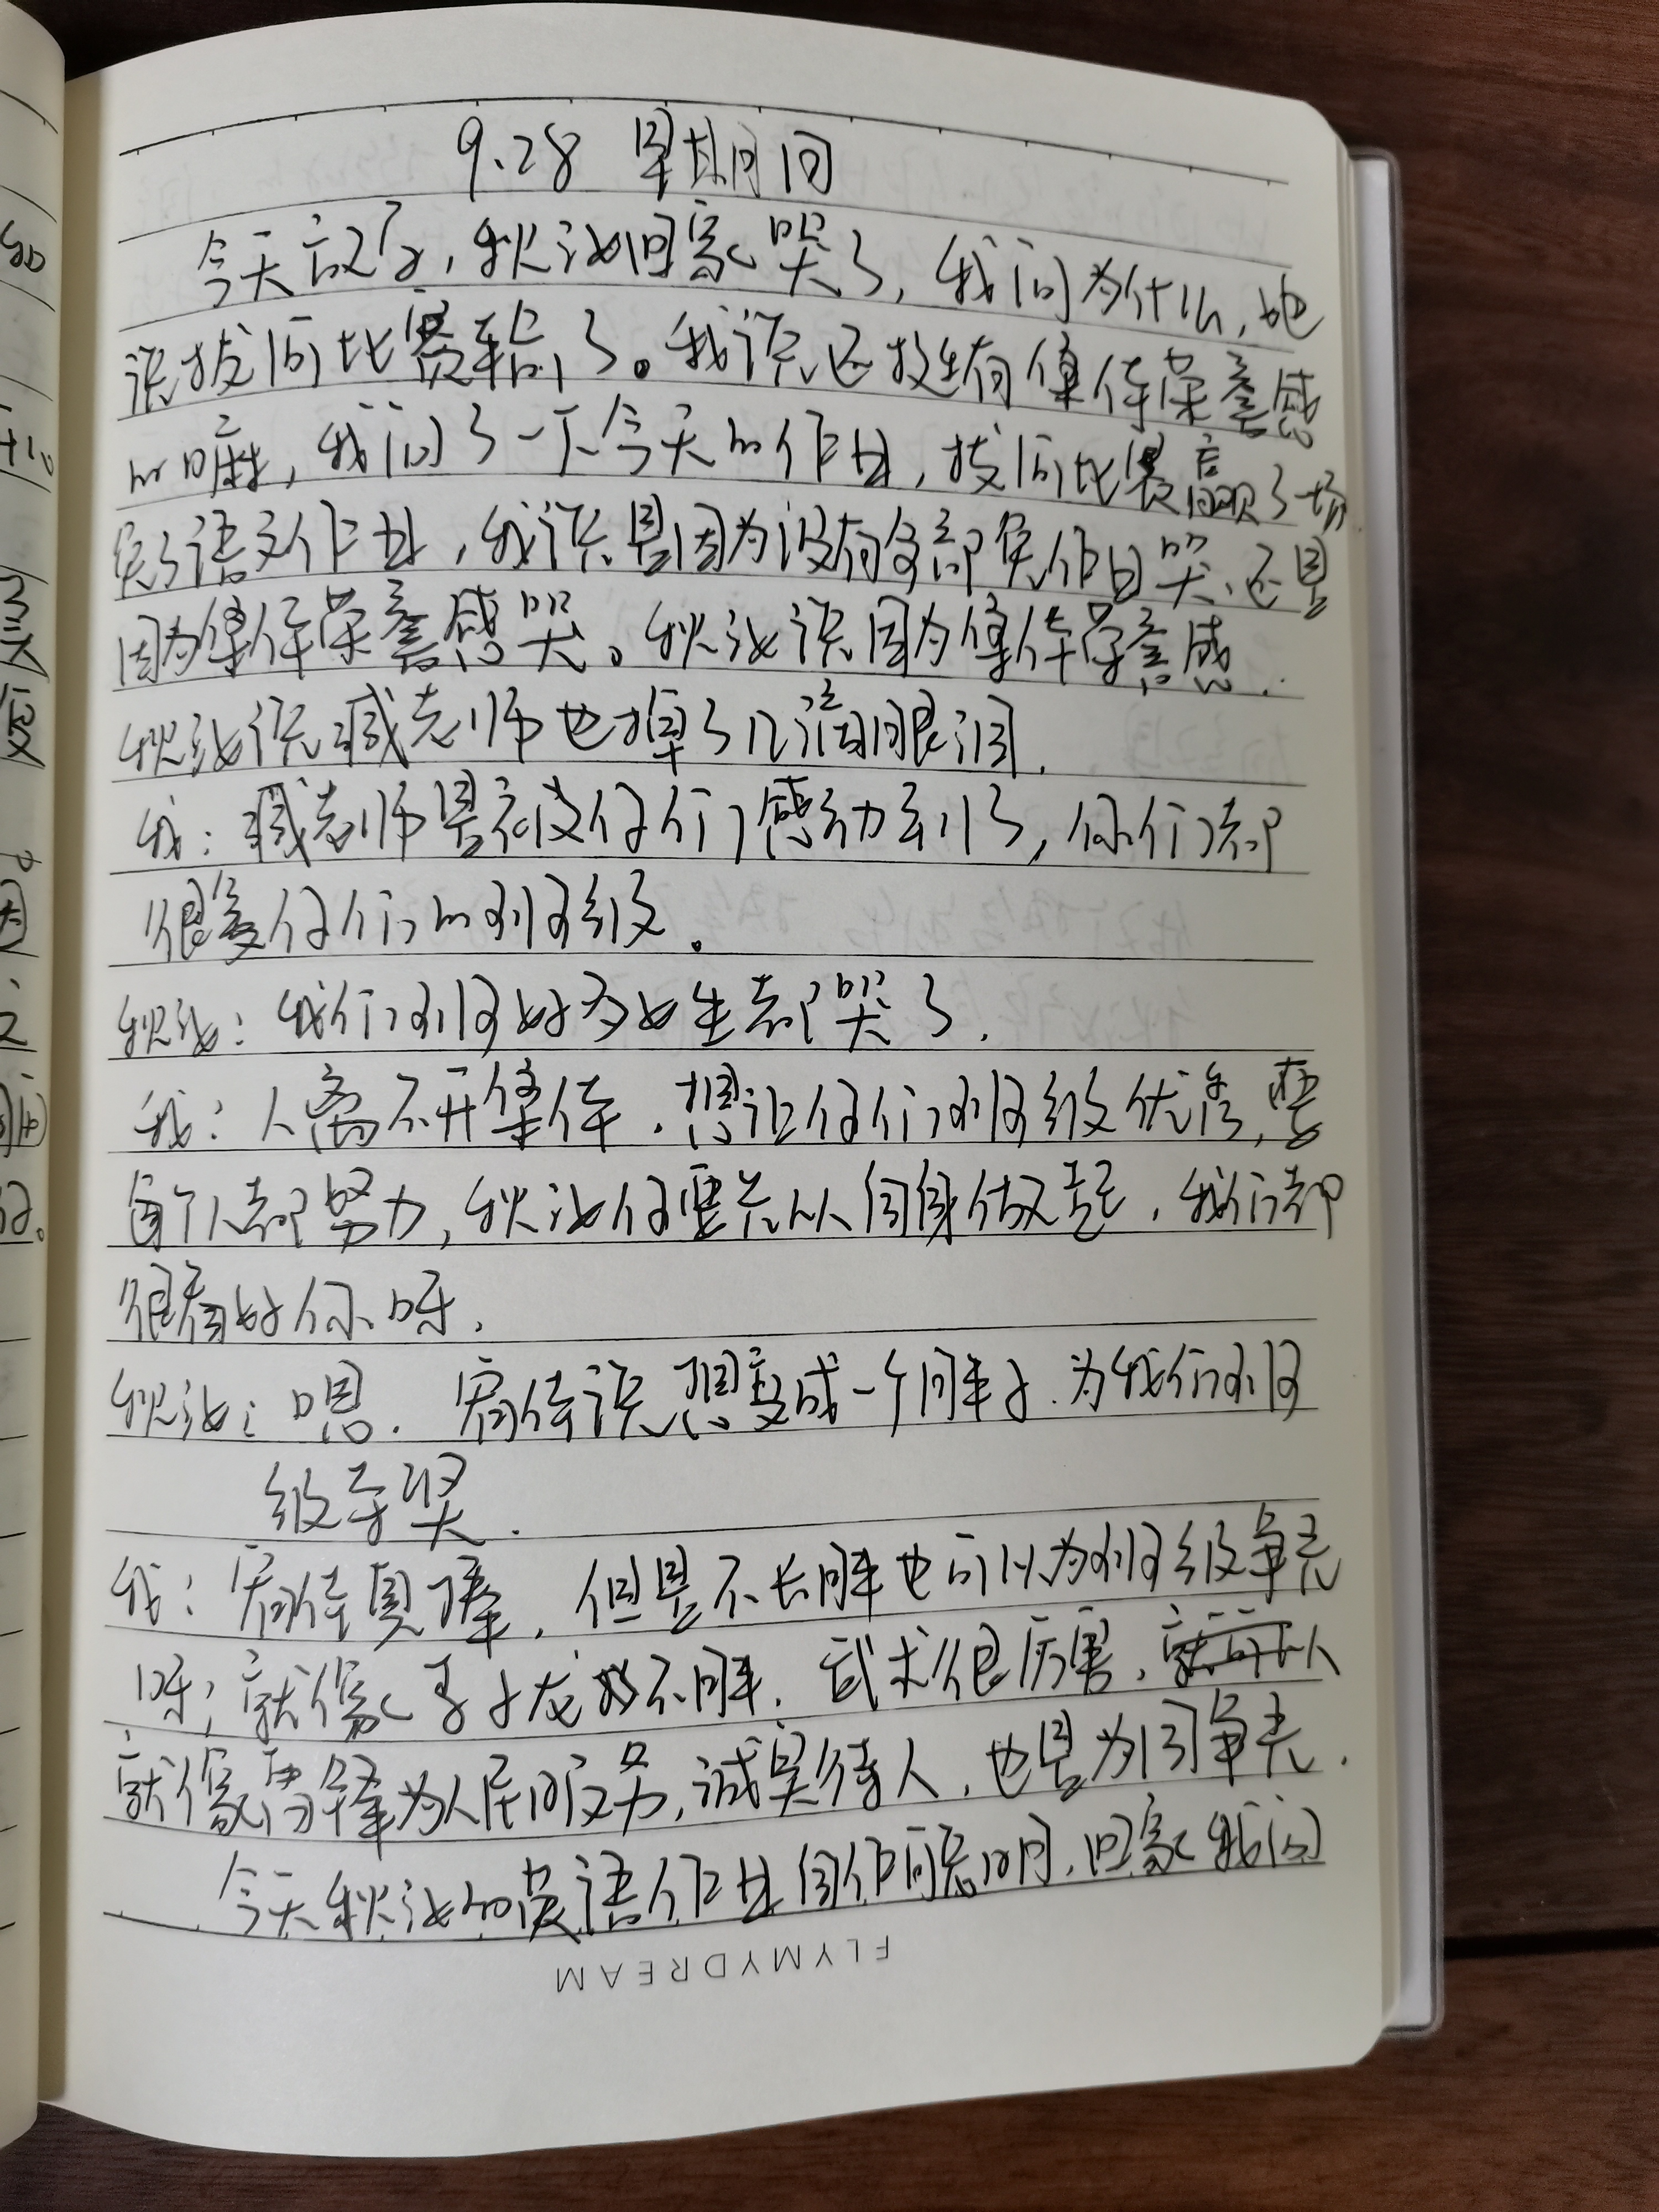 9.28 星期四
今天放了学,秋汝回家哭了,我问为什么,她
说拔河比赛输了。我说还挺有集体荣誉感
的嘛,我问了一下今天的作业,拔河比赛高项了一场
完了语文作业,我说是因为没有全部完作业哭,还是
因为集体荣誉感哭。秋汝说因为集体荣誉感.
秋汝说臧老师也掉了几滴眼泪.
我:臧老师是被你们感动到了,你们都
很爱你们的班级。
秋汝:我们班好多女生都哭了.
我:人离不开集体.想让你们班级优秀,要
每个人都努力,秋汝你要先从自身做起,我们都
很看好你呀.
秋汝:嗯.宥侍说想变成一个胖子.为我们班
级夺奖.
我:宥侍真棒,但是不长胖也可以为班级争光
呀;就像子龙不胖.武术很厉害,就可以
就像雷锋为人民服务,诚实待人,也是为国争光.
今天秋汝的英语作业自作聪明,回家我问
FLYMYDREAM